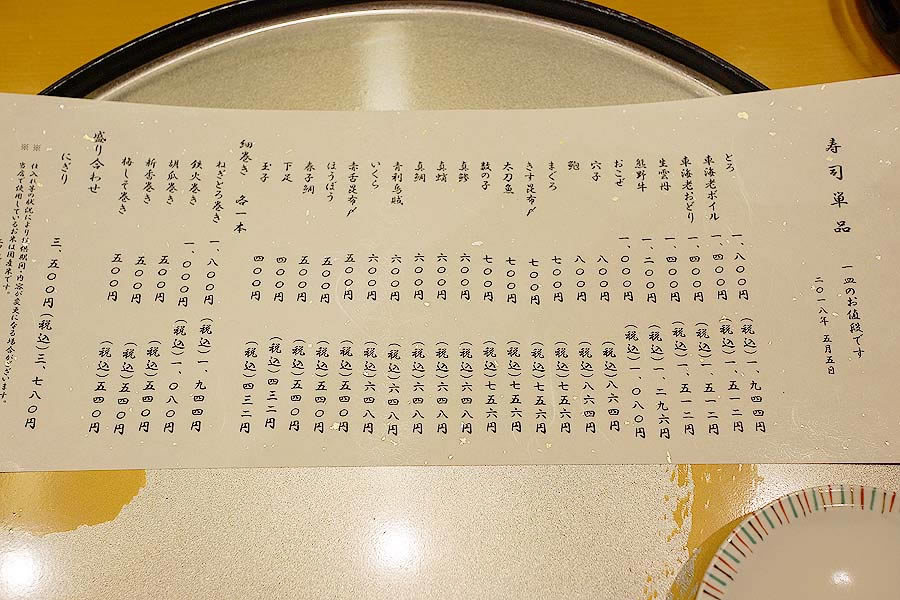 寿司単品 一皿のお値段です
二〇一八年 五月五日
とろ 一、八〇〇円(税込)一、九四四円
車海老ボイル 一、四〇〇円(税込)一、五一二円
車海老おどり 一、四〇〇円(税込)一、五一二円
生雲丹 一、四〇〇円(税込)一、五一二円
熊野牛 一、二〇〇円(税込)一、二九六円
おこぜ 一、〇〇〇円(税込)一、〇八〇円
穴子 八〇〇円(税込)八六四円
鮑 八〇〇円(税込)八六四円
まぐろ 七〇〇円(税込)七五六円
きす昆布〆 七〇〇円(税込)七五六円
太刀魚 七〇〇円(税込)七五六円
数の子 七〇〇円(税込)七五六円
真鯵 六〇〇円(税込)六四八円
真蛸 六〇〇円(税込)六四八円
真鯛 六〇〇円(税込)六四八円
青利烏賊 六〇〇円(税込)六四八円
いくら 六〇〇円(税込)六四八円
赤舌昆布〆 五〇〇円(税込)五四〇円
ほうぼう 五〇〇円(税込)五四〇円
春子鯛 五〇〇円(税込)五四〇円
下足 四〇〇円(税込)四三二円
玉子 四〇〇円(税込)四三二円
細巻き 各一本
ねぎとろ巻き 一、八〇〇円(税込)一、九四四円
鉄火巻き 一、〇〇〇円(税込)一、〇八〇円
胡瓜巻き 五〇〇円(税込)五四〇円
新香巻き 五〇〇円(税込)五四〇円
梅しそ巻き 五〇〇円(税込)五四〇円
盛り合わせ
にぎり 三、五〇〇円(税込)三、七八〇円
※ 仕入れ等の状況により提供期間・内容が変更になる場合がございます。
※ 当店で使用しているお米は国産米です。